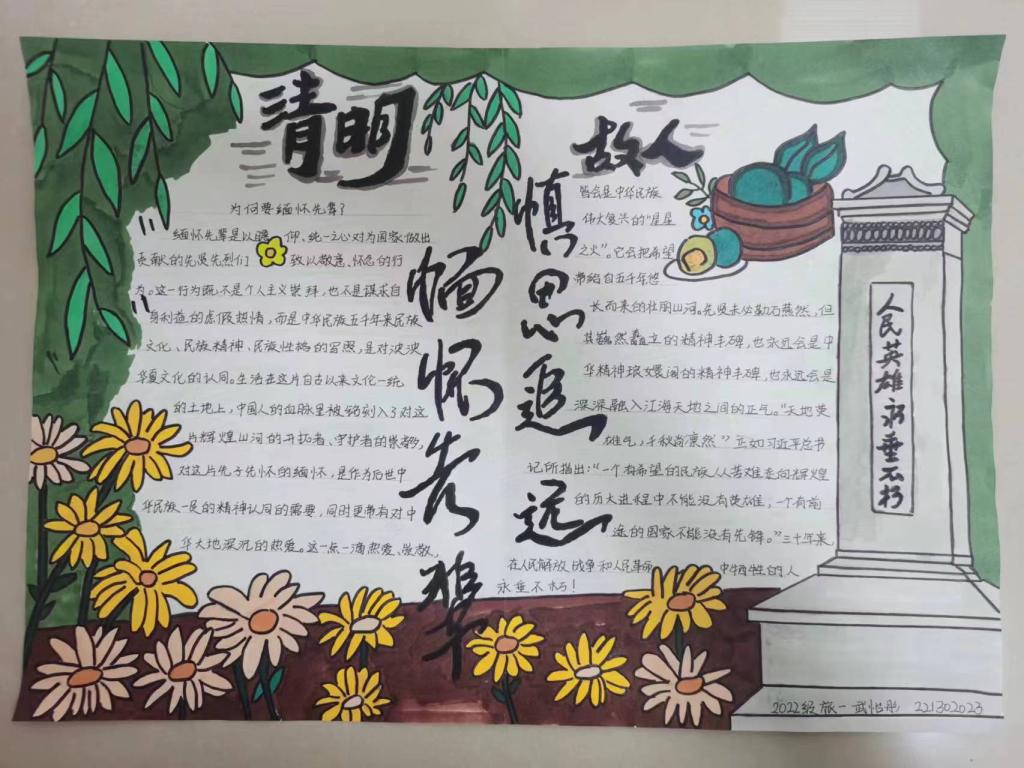 清明
为何要缅怀先辈？
缅怀先辈是以瞻仰、纯一之心对为国家做出
贡献的先贤先烈们致以敬意、怀念的行
为。这一行为既不是个人主义崇拜，也不是谋求自
身利益的虚假热情，而是中华民族五千年来民族
文化、民族精神、民族性格的写照，是对泱泱
华夏文化的认同。生活在这片自古以来文化一统
的土地上，中国人的血脉里被铭刻入了对这
片辉煌山河的开拓者、守护者的崇敬，
对这片先子先怀的缅怀，是作为后世中
华民族一员的精神认同的需要，同时更带有对中
华大地深沉的热爱。这一点一滴热爱、崇敬，
缅怀先辈
慎思追远
故人
皆会是中华民族
伟大复兴的“星星
之火”。它会把希望
带给自五千年悠
长而来的壮丽山河。先贤未必勒石燕然，但
其巍然矗立的精神丰碑，也永远会是中
华精神琅嬛阁的精神丰碑，也永远会是
深深融入江海天地之间的正气。“天地英
雄气，千秋尚凛然”正如习近平总书
记所指出：“一个有希望的民族从苦难走向辉煌
的历大进程中不能没有英雄，一个有前
途的国家不能没有先锋。”三十年来，
在人民解放战争和人民革命中牺牲的人
永垂不朽！
人民英雄永垂不朽
2022级旅一 武怡彤 221302023